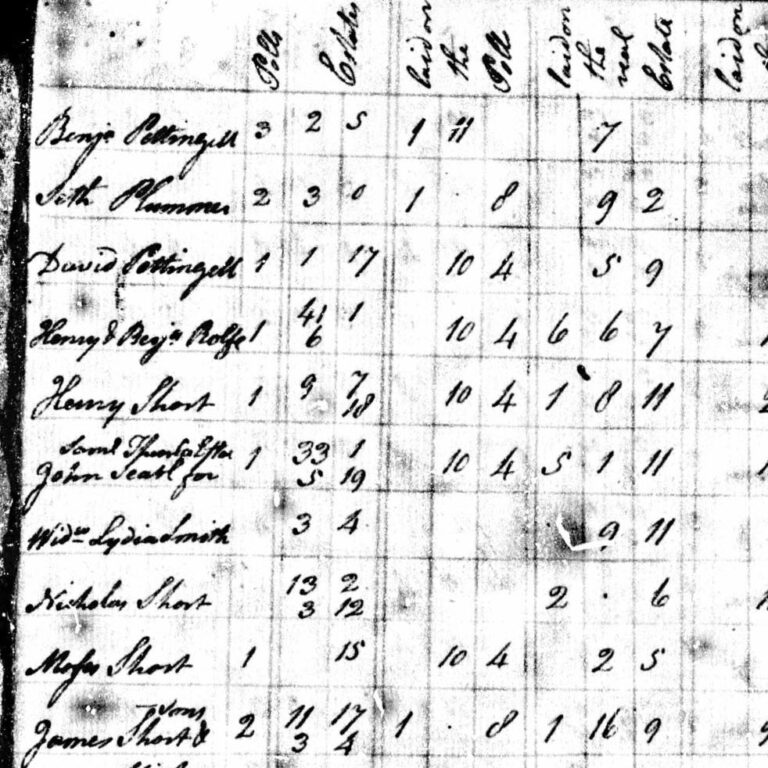 Polls Estates laid on the Poll laid on the real Estate laid on
Benjᵃ Pettingell 3 2 5 1 11 7
Seth Plummer 2 3 0 1 · 8 9 2
David Pettingell 1 1 17 10 4 5 9
41 1
Henry & Benjᵃ Rolfe 1 6 10 4 6 6 7
Henry Short 1 9 7 10 4 1 8 11
18
Saml 33 1
John for 1 5 19 10 4 5 1 11
Widᵂ Lydia Smith 3 4 9 11
13 2
Nicholas Short 3 12 2 · 6
Moses Short 1 15 10 4 2 5
Sons 11 17
James Short & 2 3 4 1 · 8 1 16 9